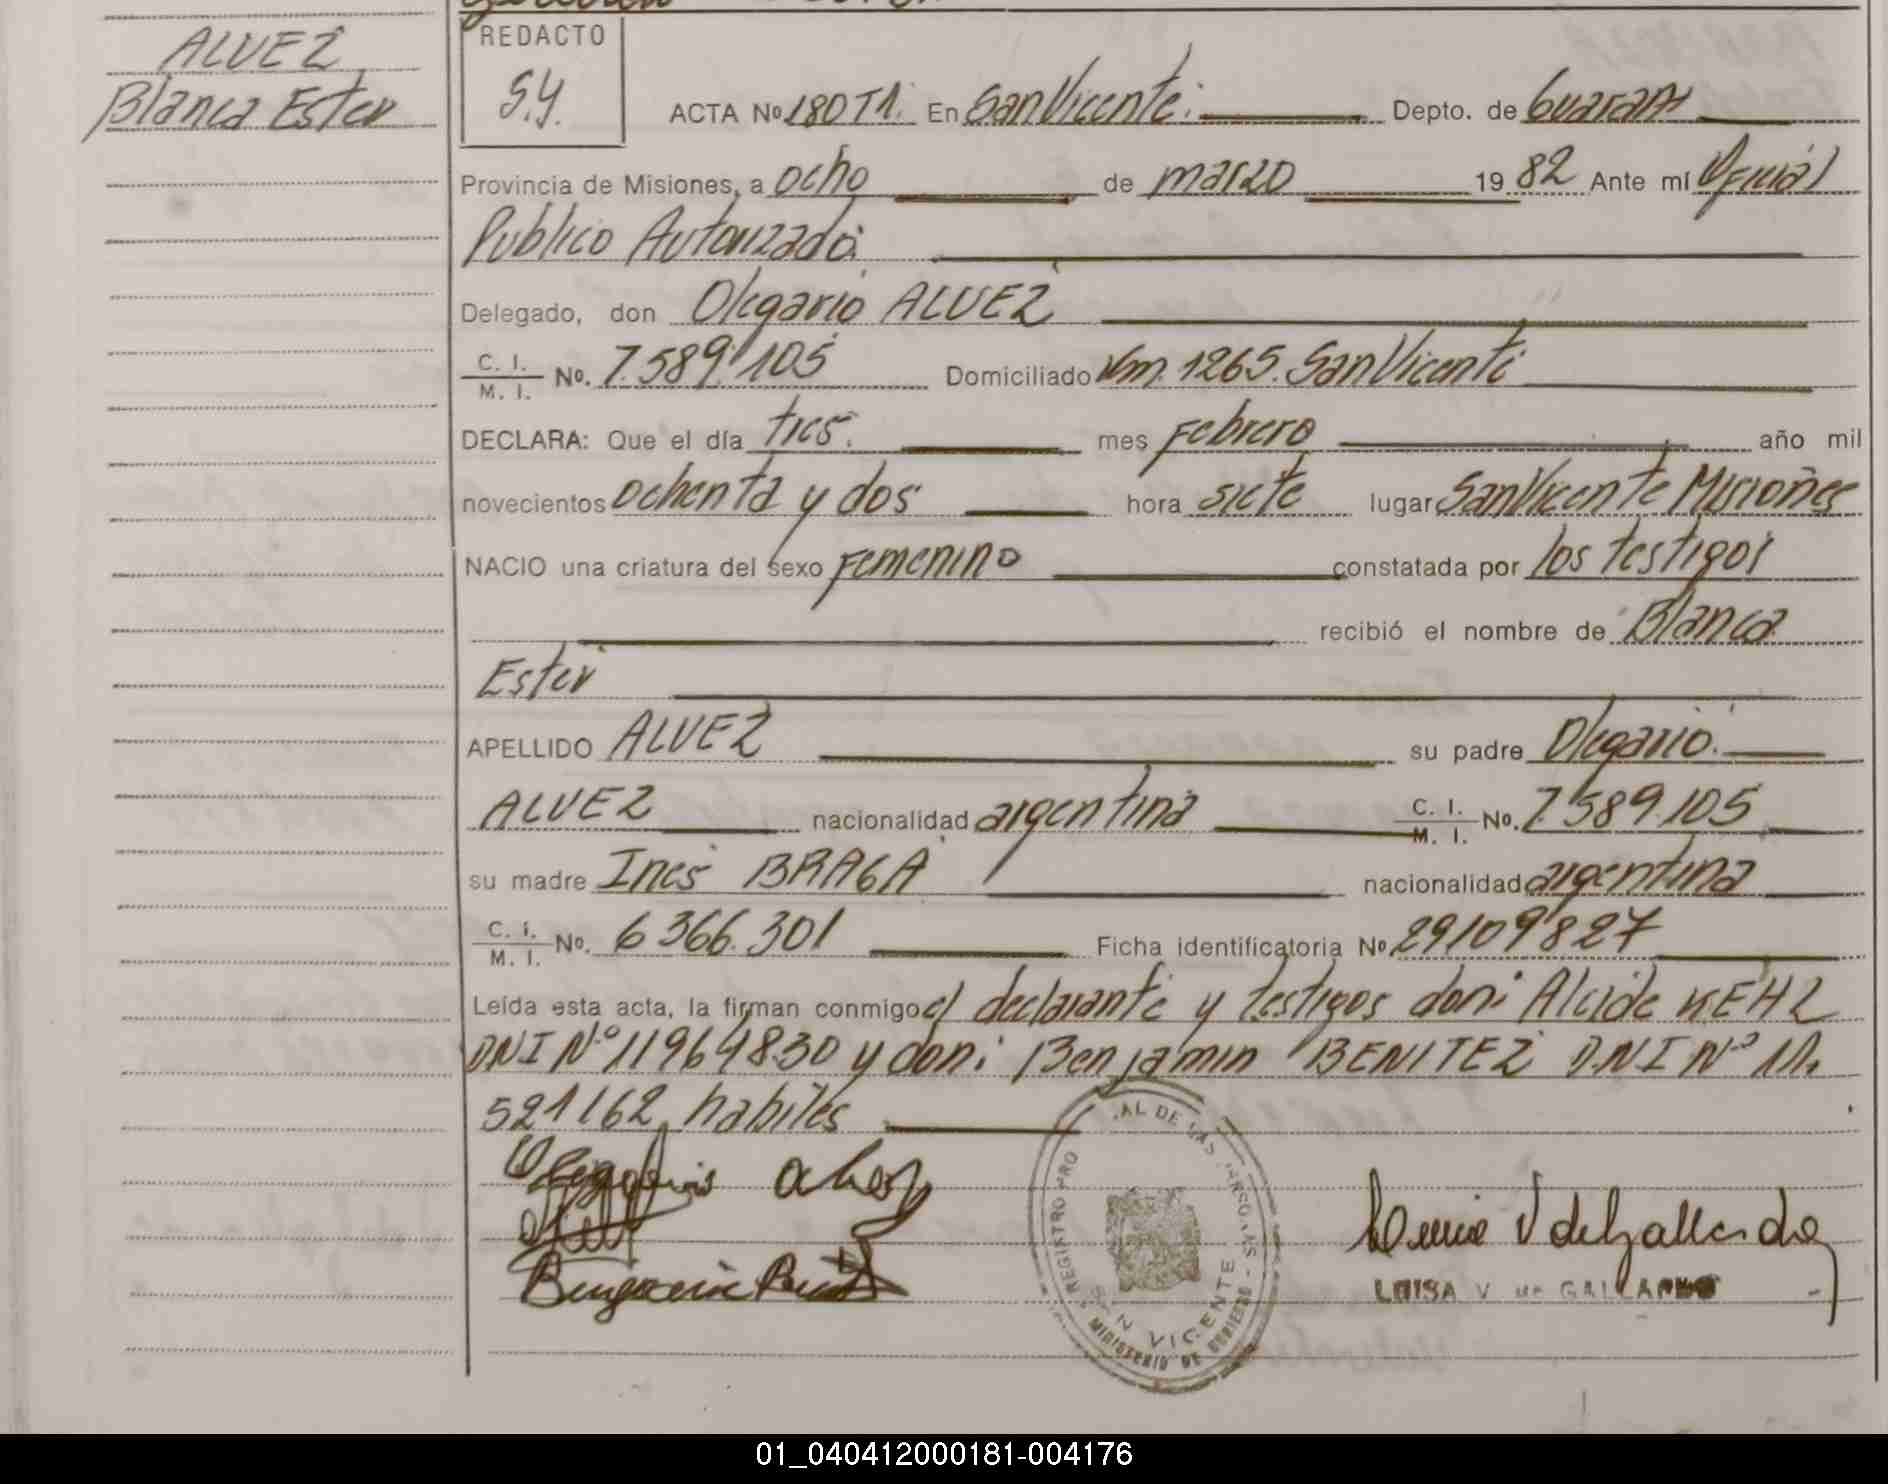 ALVEZ
Blanca Ester
REDACTO
S.Y.
ACTA Nº 180 T1. En San Vicente. Depto. de Guarani
Provincia de Misiones, a ocho de marzo 1982 Ante mí Oficial
Publico Autorizado.
Delegado, don Olegario ALVEZ
C. I.
M. I. Nº. 7.589.105 Domiciliado Km. 1265. San Vicente
DECLARA: Que el día tres. mes Febrero año mil
novecientos ochenta y dos hora siete lugar San Vicente Misiones
NACIO una criatura del sexo Femenino constatada por los testigos
recibió el nombre de Blanca
Ester
APELLIDO ALVEZ su padre Olegario.
ALVEZ nacionalidad argentina C. I.
M. I. Nº. 7.589.105
su madre Ines BRAGA nacionalidad argentina
C. I.
M. I. Nº. 6366.301 Ficha identificatoria Nº 29109827
Leída esta acta, la firman conmigo el declarante y testigos don: Alcide KEHL
DNI Nº 11964830 y don: Benjamin BENITEZ D.N.I Nº 11.
521162 habiles
REGISTRO PRO AL DE LAS PERSONAS - SAN VICENTE
MINISTERIO DE GOBIERNO
Luisa V de Gallardo
LUISA V de GALLARDO
01_040412000181-004176